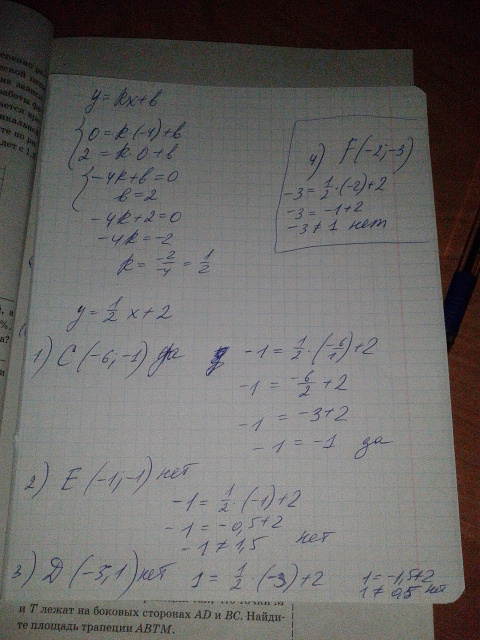 y = kx + b
0 = k·(-4) + b
2 = k·0 + b
-4k + b = 0
b = 2
-4k + 2 = 0
-4k = -2
k = -2/-4 = 1/2
y = 1/2 x + 2
4) F(-2; -3)
-3 = 1/2·(-2) + 2
-3 = -1 + 2
-3 ≠ 1 нет
1) C(-6; -1) да
-1 = 1/2·(-6/1) + 2
-1 = -6/2 + 2
-1 = -3 + 2
-1 = -1 да
2) E(-1; -1) нет
-1 = 1/2·(-1) + 2
-1 = -0,5 + 2
-1 ≠ 1,5 нет
3) D(-3; 1) нет 1 = 1/2·(-3) + 2
1 = -1,5 + 2
1 ≠ 0,5 нет
и T лежат на боковых сторонах AD и BC. Найди-
те площадь трапеции ABTM.